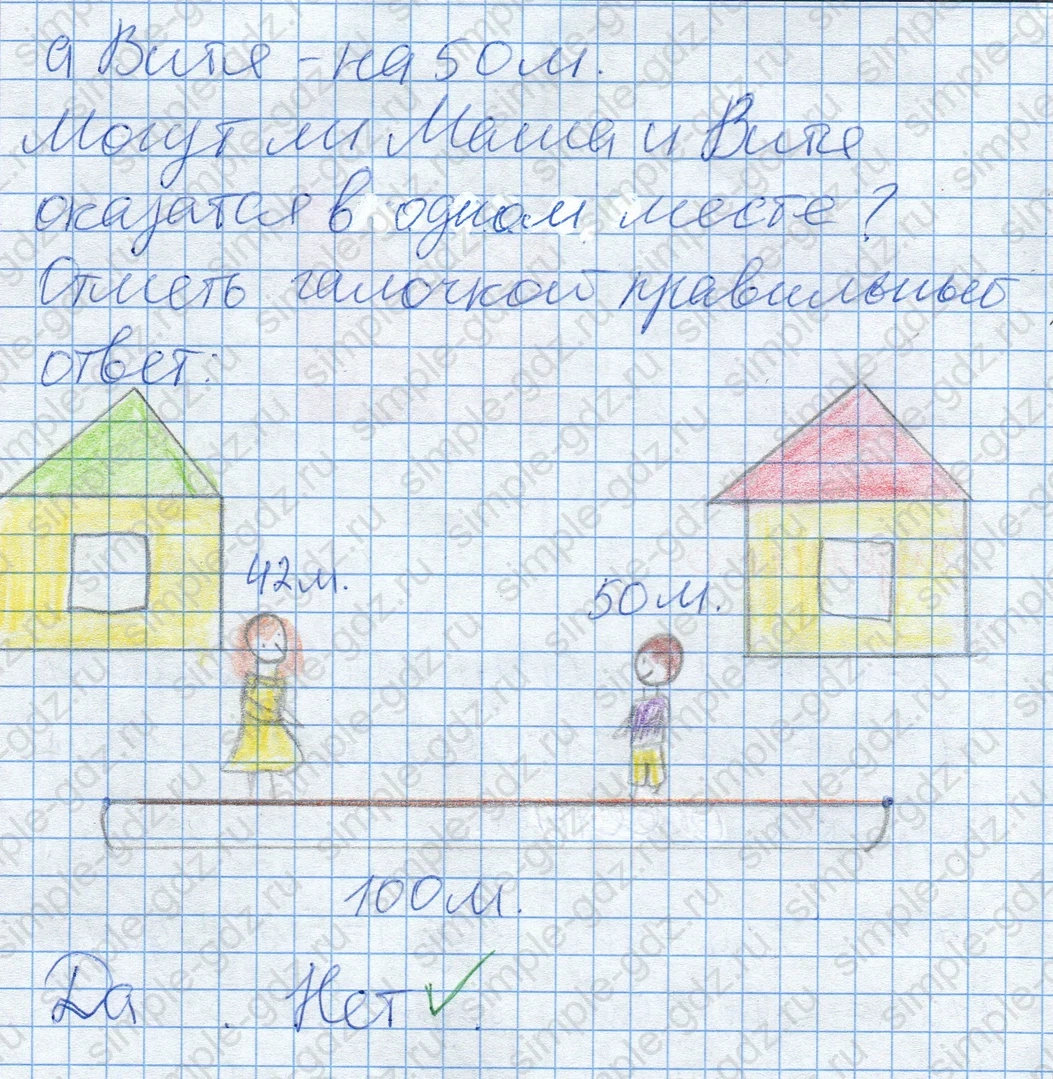 а Витя - на 50 м.
Могут ли Маша и Витя
оказатся в одном месте?
Отметь галочкой правильный
ответ:
42м.
50м.
100м.
Да . Нет ✓.
simple-gdz.ru